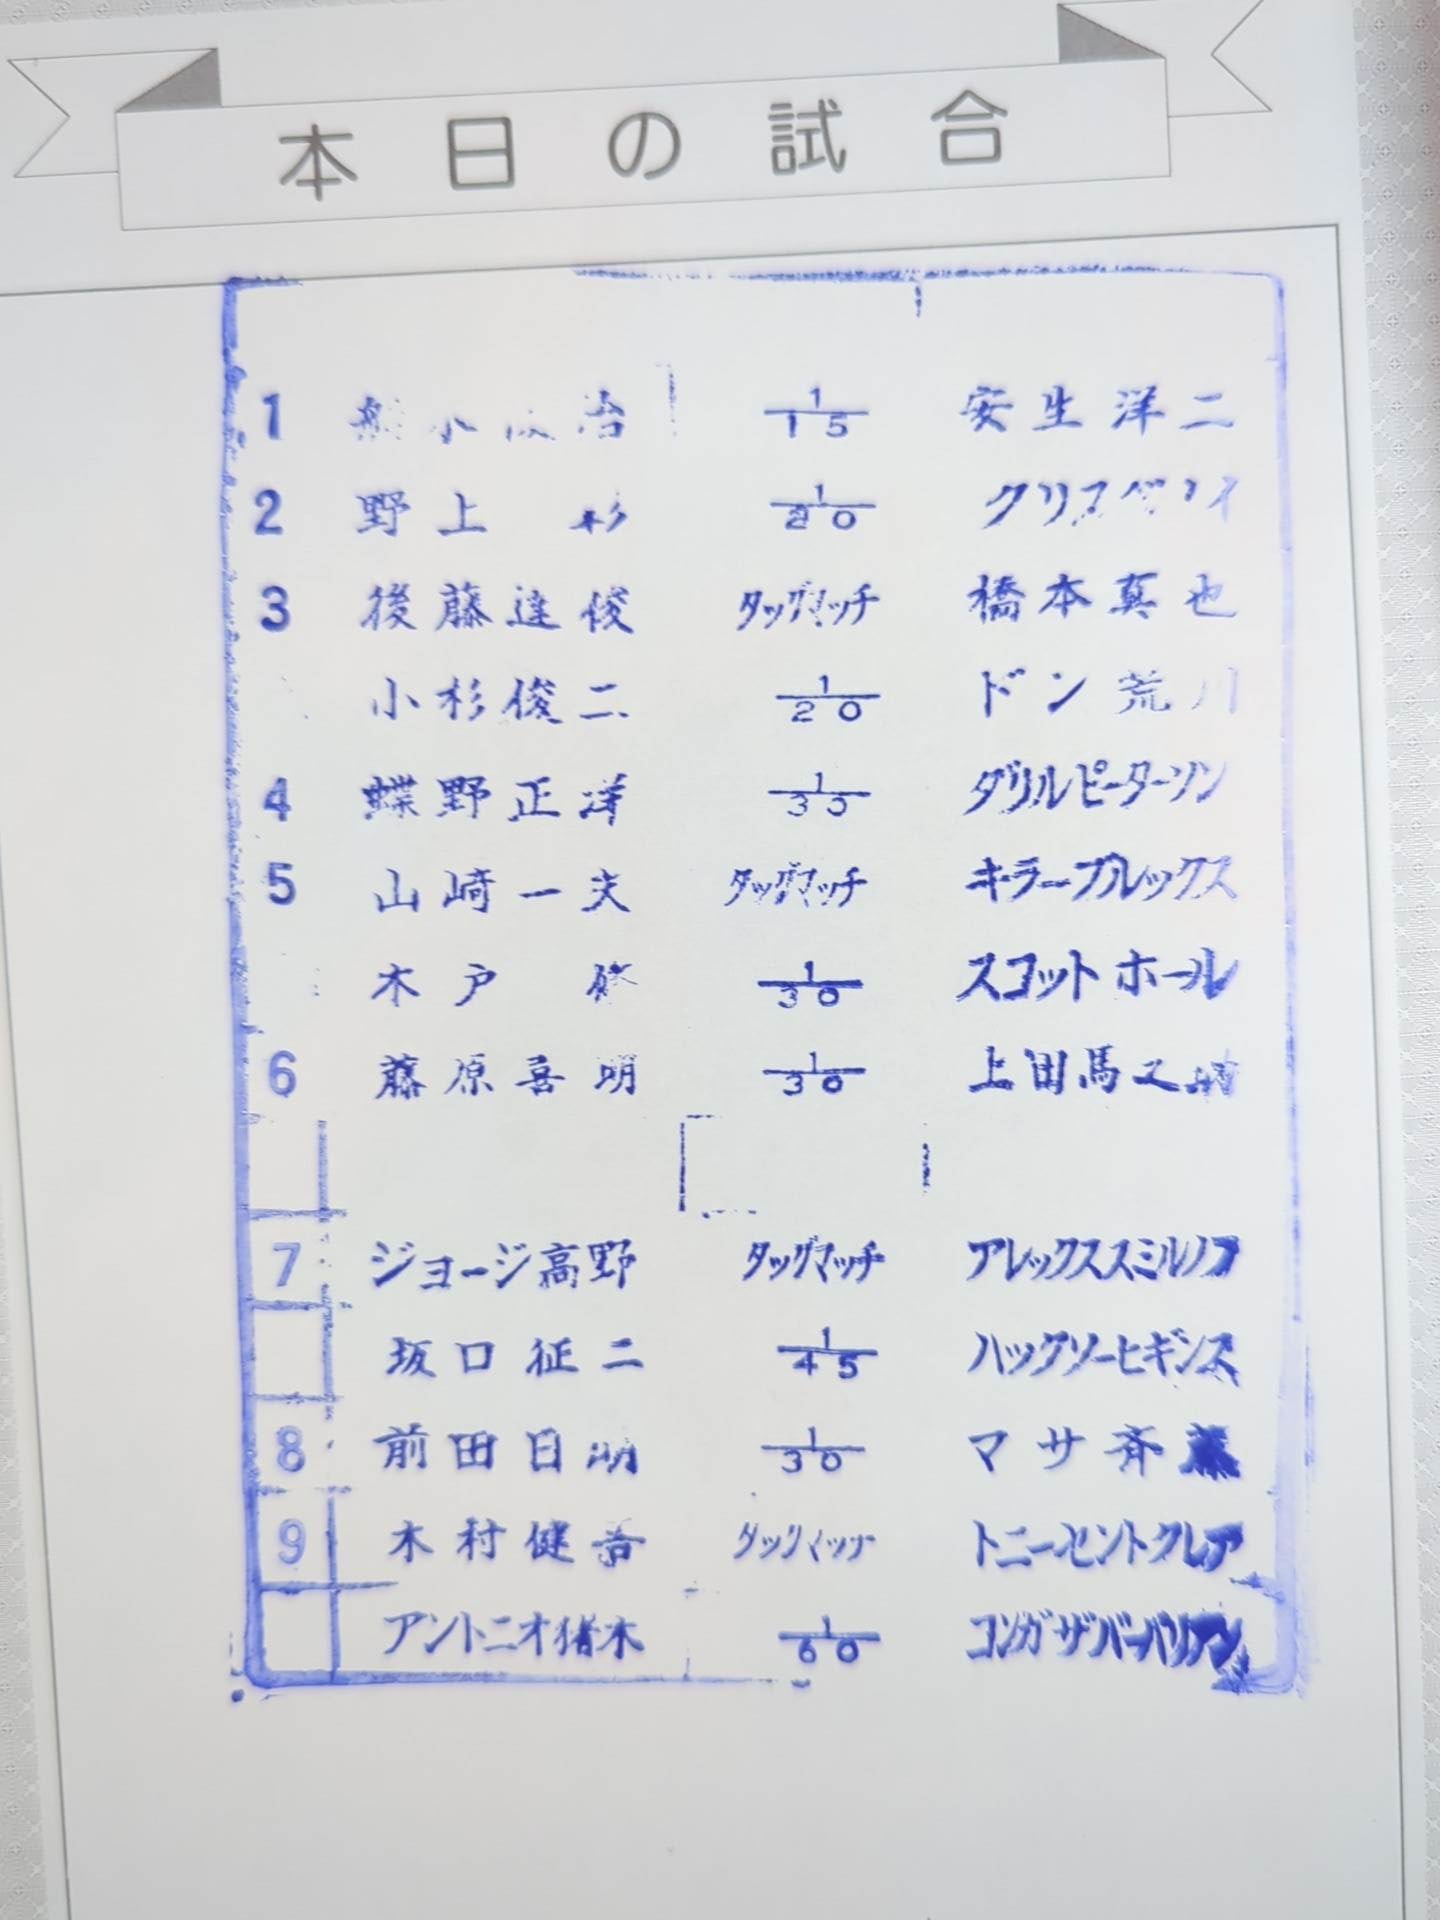 本日の試合
1 船木優治 1/15 安生洋二
2 野上 彰 1/20 クリス
3 後藤達俊 タッグマッチ 橋本真也
小杉俊二 1/20 ドン荒川
4 蝶野正洋 1/30 ダリルピーターソン
5 山崎一夫 タッグマッチ キラーブルックス
木戸 修 1/30 スコットホール
6 藤原喜明 1/30 上田馬之助
7 ジョージ高野 タッグマッチ アレックススミルノフ
坂口征二 1/45 ハックソーヒギンズ
8 前田日明 1/30 マサ斉藤
9 木村健吾 タッグマッチ トニーセントクレア
アントニオ猪木 1/60 コンガザバーバリアン